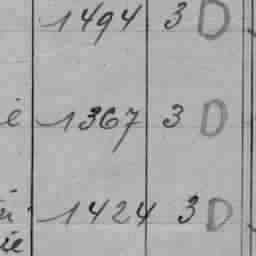 1494 3 D
é 1367 3 D
1424 3 D
ie